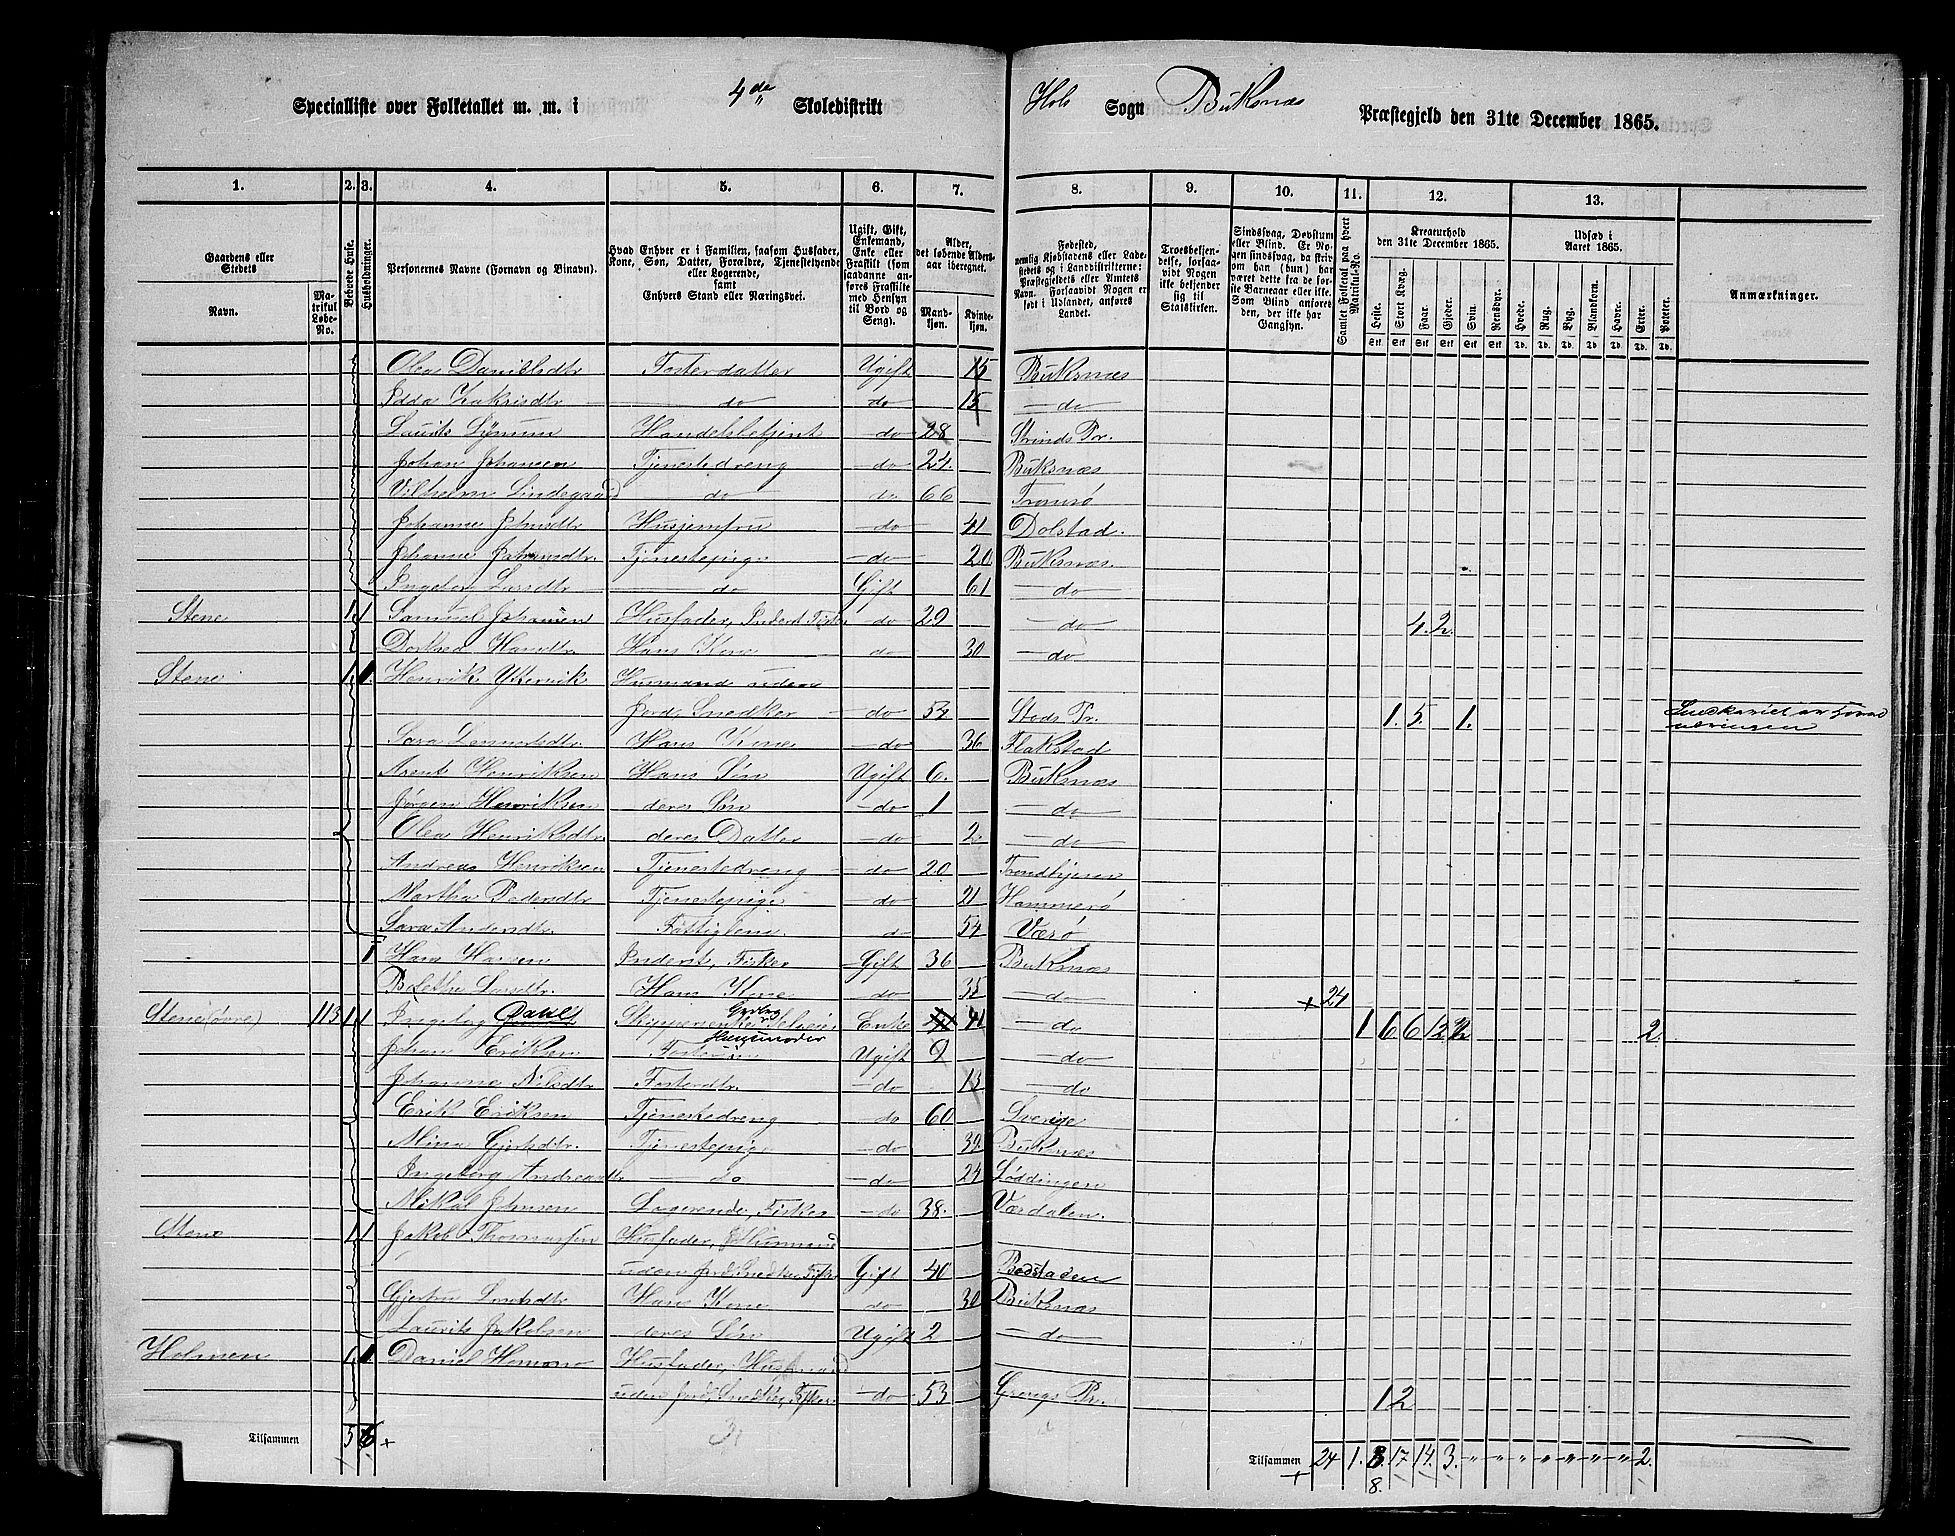 Specialliste over Folketallet m. m. i 4de Skoledistrikt Hols Sogn Buksnæs Præstegjeld den 31te December 1865.
1. 2. 3. 4. 5. 6. 7. 8. 9. 10. 11. 12. 13.
Gaardens eller Stedets
Navn.
Matrikul Løbe-No.
Beboede Huse.
Husholdninger.
Personernes Navne (Fornavn og Binavn).
Hvad Enhver er i Familien, saasom Husfader, Kone, Søn, Datter, Forældre, Tjenestetyende eller Logerende, samt Enhvers Stand eller Næringsvei.
Ugift, Gift, Enkemand, Enke eller Fraskilt (som saadanne anføres Fraskilte med Hensyn til Bord og Seng).
Alder, det løbende Alders-aar iberegnet.
Mandkjøn. Kvindekjøn.
Fødested, nemlig Kjøbstadens eller Ladestedets og i Landdistrikterne: Præstegjeldets eller Amtets Navn. Forsaavidt Nogen er født i Udlandet, anføres Landet.
Troesbekjendelse, forsaavidt Nogen ikke bekjender sig til Statskirken.
Sindssvag, Døvstum eller Blind. Er Nogen sindssvag, da skrives om han (hun) har været dette fra de første Barneaar eller ikke. Som Blind anføres den, der ikke har Gangsyn.
Samlet Folketal paa hvert Matrikul-No.
Kreaturhold den 31te December 1865.
Heste. Stort Kvæg. Faar. Gjeder. Svin. Rensdyr.
Udsæd i Aaret 1865.
Hvede. Rug. Byg. Blandkorn. Havre. Erter. Poteter.
Anmærkninger.
Olea Danielsdtr Fosterdatter Ugift 15 Buksnæs
Idda Zakrisdtr do do 15 do
Laurits Lynum Handelsbetjent do 28 Strinds Pr.
Johan Johansen Tjenestedreng do 24 Buksnæs
Vilhelm Lindegaard do do 66 Tromsø
Johanne Johnsdtr Husjomfru do 41 Dolstad.
Johanne Johansdtr Tjenestepige do 20 Buksnæs.
Ingeborg Larsdtr do Gift 61 do
Stene 1 1 Samuel Johnsen Husfader, Inderst Fisker do 29 do 4. 2.
Dorthea Hansdtr. Hans Kone do 30 do
Stene 1 1 Henrik Yttervik Husmand uden
Jord, Snedker do 54 Stods Pr. 1. 5. 1.
Sara Lennertsdtr Hans Kone do 36 Flakstad
Arent Henriksen Hans Søn Ugift 6. Buksnæs
Jørgen Henriksen deres Søn do 1 do
Olea Henriksdtr. deres Datter do 2 do
Andreas Henriksen Tjenestedreng do 20 Trondhjem
Martha Pedersdtr Tjenestepige do 21 Hammerø
Sara Andersdtr. Fattiglem do 54 Værø
1 Hans Hansen Inderst, Fisker Gift 36 Buksnæs
Bolethe Larsdtr. Hans Kone do 35 do + 24
Stene (øvre) 113 1 1 Ingeborg Dahl Enke 41 do 1 6 6 12 2
Husmoder
Johan Eriksen Fostersøn Ugift 9 do
Johanna Nilsdtr Fosterdtr. do 13 do
Erik Eriksen Tjenestedreng do 60 Sverige
Mina Gjertsdtr. Tjenestepige do 39 Buksnæs
Ingeborg Andreasdtr do do 24 Løddingen
Mikal Johnsen Logerende, Fisker do 38. Værdalen.
Stene 1 1 Jakob Thomassen Husfader, Husmand
uden Jord, Snedker, Fisker Gift 40 Bodstaden
Gjertru Larsdtr Hans Kone do 30 Buksnæs
Laurits Jakobsen deres Søn Ugift 2 do
Holmen 1 1 Daniel Husfader, Husmand
uden Jord, Snedker, Fisker do 53 Grongs Pr. 1 2
Tilsammen 5 6 +
Tilsammen + 24 1. 8. 17 14. 3. " " " " " " " 2.
8.